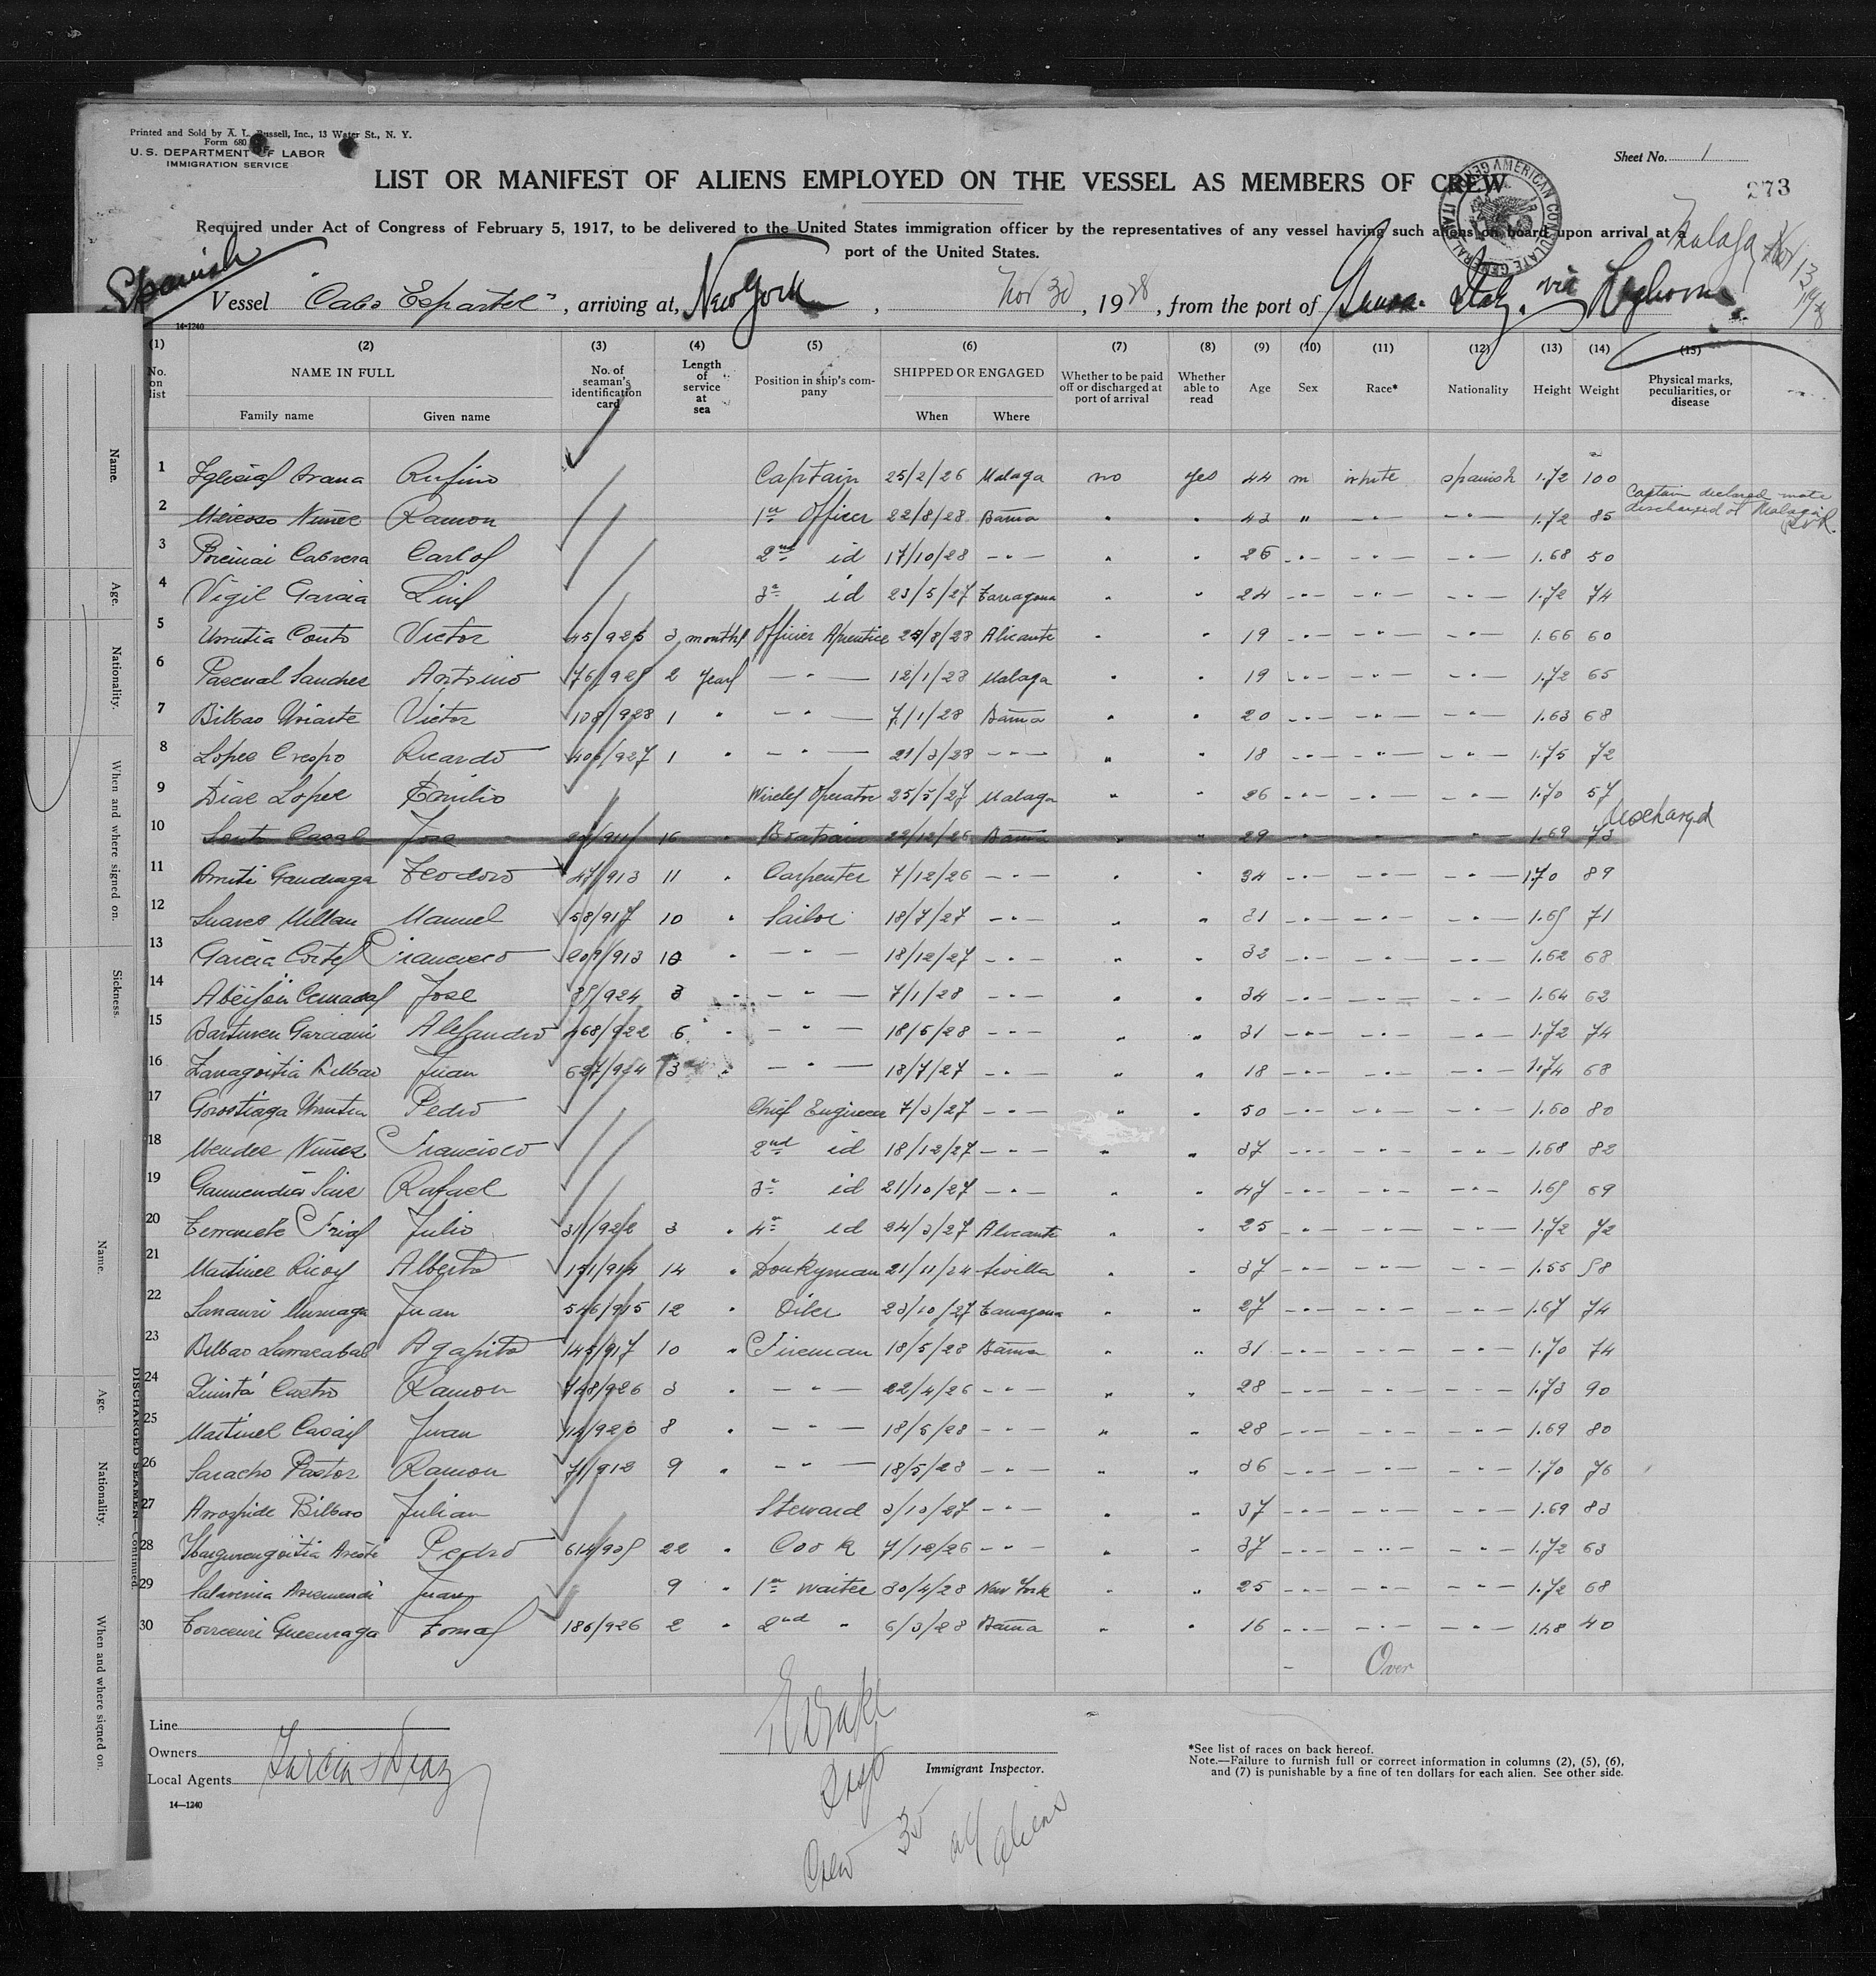 Printed and Sold by A. L. Russell, Inc., 13 Water St., N. Y.
Form 680
U. S. DEPARTMENT OF LABOR
IMMIGRATION SERVICE
Sheet No. 1
LIST OR MANIFEST OF ALIENS EMPLOYED ON THE VESSEL AS MEMBERS OF CREW
273
AMERICAN CONSULATE GENERAL ITALY
Required under Act of Congress of February 5, 1917, to be delivered to the United States immigration officer by the representatives of any vessel having such aliens on board upon arrival at a
port of the United States.
Spanish
Malaga Nov 13 1928
Vessel "Cabo Espartel", arriving at New York, Nov 30, 1928, from the port of Genoa Italy. via Leghorn
14-1240
(1) (2) (3) (4) (5) (6) (7) (8) (9) (10) (11) (12) (13) (14) (15)
No. on list
NAME IN FULL
Family name Given name
No. of seaman's identification card
Length of service at sea
Position in ship's company
SHIPPED OR ENGAGED
When Where
Whether to be paid off or discharged at port of arrival
Whether able to read
Age Sex Race* Nationality Height Weight
Physical marks, peculiarities, or disease
1 Iglesias Arana Rufino Captain 25/2/26 Malaga no yes 44 m white spanish 1.72 100
2 Nuñez Ramon 1st Officer 22/8/28 Bãna " " 43 " - " - - " - 1.72 85 Captain declared mate discharged at Malaga
3 Cabrera Carlos 2nd id 17/10/28 - " - " " 26 - " - - " - - " - 1.68 50
4 Vigil Garcia Luis 3r id 23/5/27 Tarragona " " 24 - " - - " - - " - 1.72 74
5 Urrutia Couto Victor 45/925 3 months Officier Aprentice 25/8/28 Alicante " " 19 - " - - " - - " - 1.66 60
6 Pascual Sanchez Antonio 76/925 2 years - " - 12/1/28 Malaga " " 19 - " - - " - - " - 1.72 65
7 Bilbao Uriarte Victor 108/928 1 " - " - 7/1/28 Bãna " " 20 - " - - " - - " - 1.63 68
8 Lopez Crespo Ricardo 406/927 1 " - " - 21/3/28 - " - " " 18 - " - - " - - " - 1.75 72
9 Diaz Lopez Emilio Wireless Operator 25/5/27 Malaga " " 26 - " - - " - - " - 1.70 57
10 Casal Jose 16 " Boatswain 22/12/26 Bãna " " 29 - " - - " - - " - 1.69 73 Discharged
11 Teodoro 47/913 11 " Carpenter 7/12/26 - " - " " 34 - " - - " - - " - 1.70 89
12 Suarez Millan Manuel 58/917 10 " Sailor 18/7/27 - " - " " 31 - " - - " - - " - 1.65 71
13 Garcia Cortes Francisco 209/913 10 " - " - 18/12/27 - " - " " 32 - " - - " - - " - 1.62 68
14 Jose 35/924 3 " - " - 7/1/28 - " - " " 34 - " - - " - - " - 1.64 62
15 Alejandro 468/922 6 " - " - 18/5/28 - " - " " 31 - " - - " - - " - 1.72 74
16 Zarragoitia Bilbao Juan 627/924 3 " - " - 18/7/27 - " - " " 18 - " - - " - - " - 1.74 68
17 Gorostiaga Urrutia Pedro Chief Engineer 7/3/27 - " - " " 50 - " - - " - - " - 1.60 80
18 Mendez Nuñez Francisco 2nd id 18/12/27 - " - " " 37 - " - - " - - " - 1.68 82
19 Garmendia Saiz Rafael 3r id 21/10/27 - " - " " 47 - " - - " - - " - 1.65 69
20 Frias Julio 31/922 3 " 4r id 24/3/27 Alicante " " 25 - " - - " - - " - 1.72 72
21 Martinez Ricoy Alberto 151/914 14 " Donkyman 21/11/24 Sevilla " " 37 - " - - " - - " - 1.55 58
22 Juan 546/915 12 " Oiler 23/10/27 Tarragona " " 27 - " - - " - - " - 1.67 74
23 Bilbao Larracabal Agapito 145/917 10 " Fireman 18/5/28 Bãna " " 31 - " - - " - - " - 1.70 74
24 Quinta Castro Ramon 748/926 3 " - " - 22/4/26 - " - " " 28 - " - - " - - " - 1.73 90
25 Martinez Casais Juan 14/920 8 " - " - 18/5/28 - " - " " 28 - " - - " - - " - 1.69 80
26 Saracho Pastor Ramon 71/912 9 " - " - 18/5/28 - " - " " 36 - " - - " - - " - 1.70 76
27 Arrospide Bilbao Julian Steward 3/10/27 - " - " " 37 - " - - " - - " - 1.69 83
28 Pedro 614/905 22 " Cook 7/12/26 - " - " " 37 - " - - " - - " - 1.72 63
29 Juan 9 " 1st waiter 30/4/28 New York " " 25 - " - - " - - " - 1.72 68
30 Tomas 186/926 2 " 2nd " 6/3/28 Bãna " " 16 - " - - " - - " - 1.48 40
Over
Line
Owners
Local Agents Garcia & Diaz
14—1240
Immigrant Inspector.
Crew 35 all aliens
*See list of races on back hereof.
Note.—Failure to furnish full or correct information in columns (2), (5), (6),
and (7) is punishable by a fine of ten dollars for each alien. See other side.
Name.
Age.
Nationality.
When and where signed on.
Sickness.
DISCHARGED SEAMEN—Continued.
Name.
Age.
Nationality.
When and where signed on.